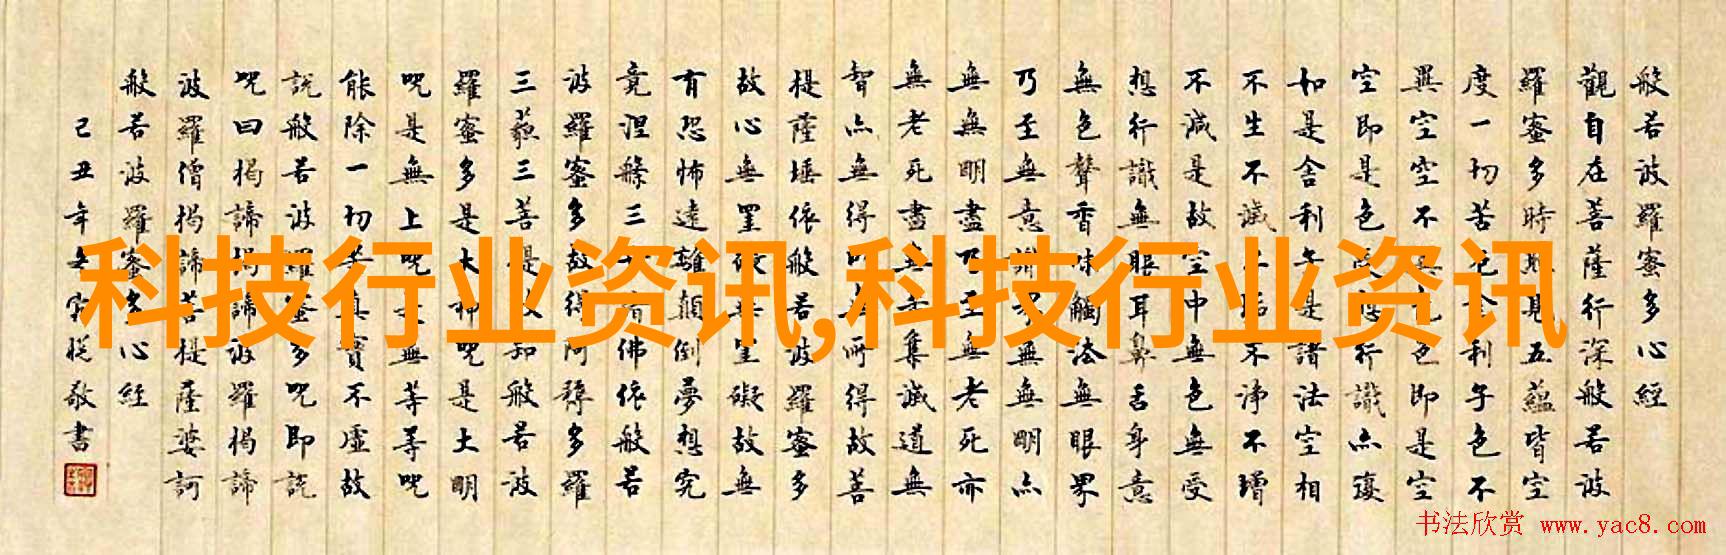 般若波羅蜜多心經
觀自在菩薩行深般若波
羅蜜多時照見五蘊皆空
度一切苦厄舍利子色不
異空空不異色色即是空
空即是色受想行識亦復
如是舍利子是諸法空相
不生不滅不垢不淨不增
不減是故空中無色無受
想行識無眼耳鼻舌身意
無色聲香味觸法無眼界
乃至無意識界無無明亦
無無明盡乃至無老死亦
無老死盡無苦集滅道無
智亦無得以無所得故菩
提薩埵依般若波羅蜜多
故心無罣礙無罣礙故無
有恐怖遠離顛倒夢想究
竟涅槃三世諸佛依般若
波羅蜜多故得阿耨多羅
三藐三菩提故知般若波
羅蜜多是大神呪是大明
呪是無上呪是無等等呪
能除一切苦真實不虛故
説般若波羅蜜多呪即説
呪曰揭諦揭諦波羅揭諦
波羅僧揭諦菩提薩婆訶
般若波羅蜜多心經
己丑年敬書
科技行业资讯,科技行业资讯
书法欣赏 www.yac8.com